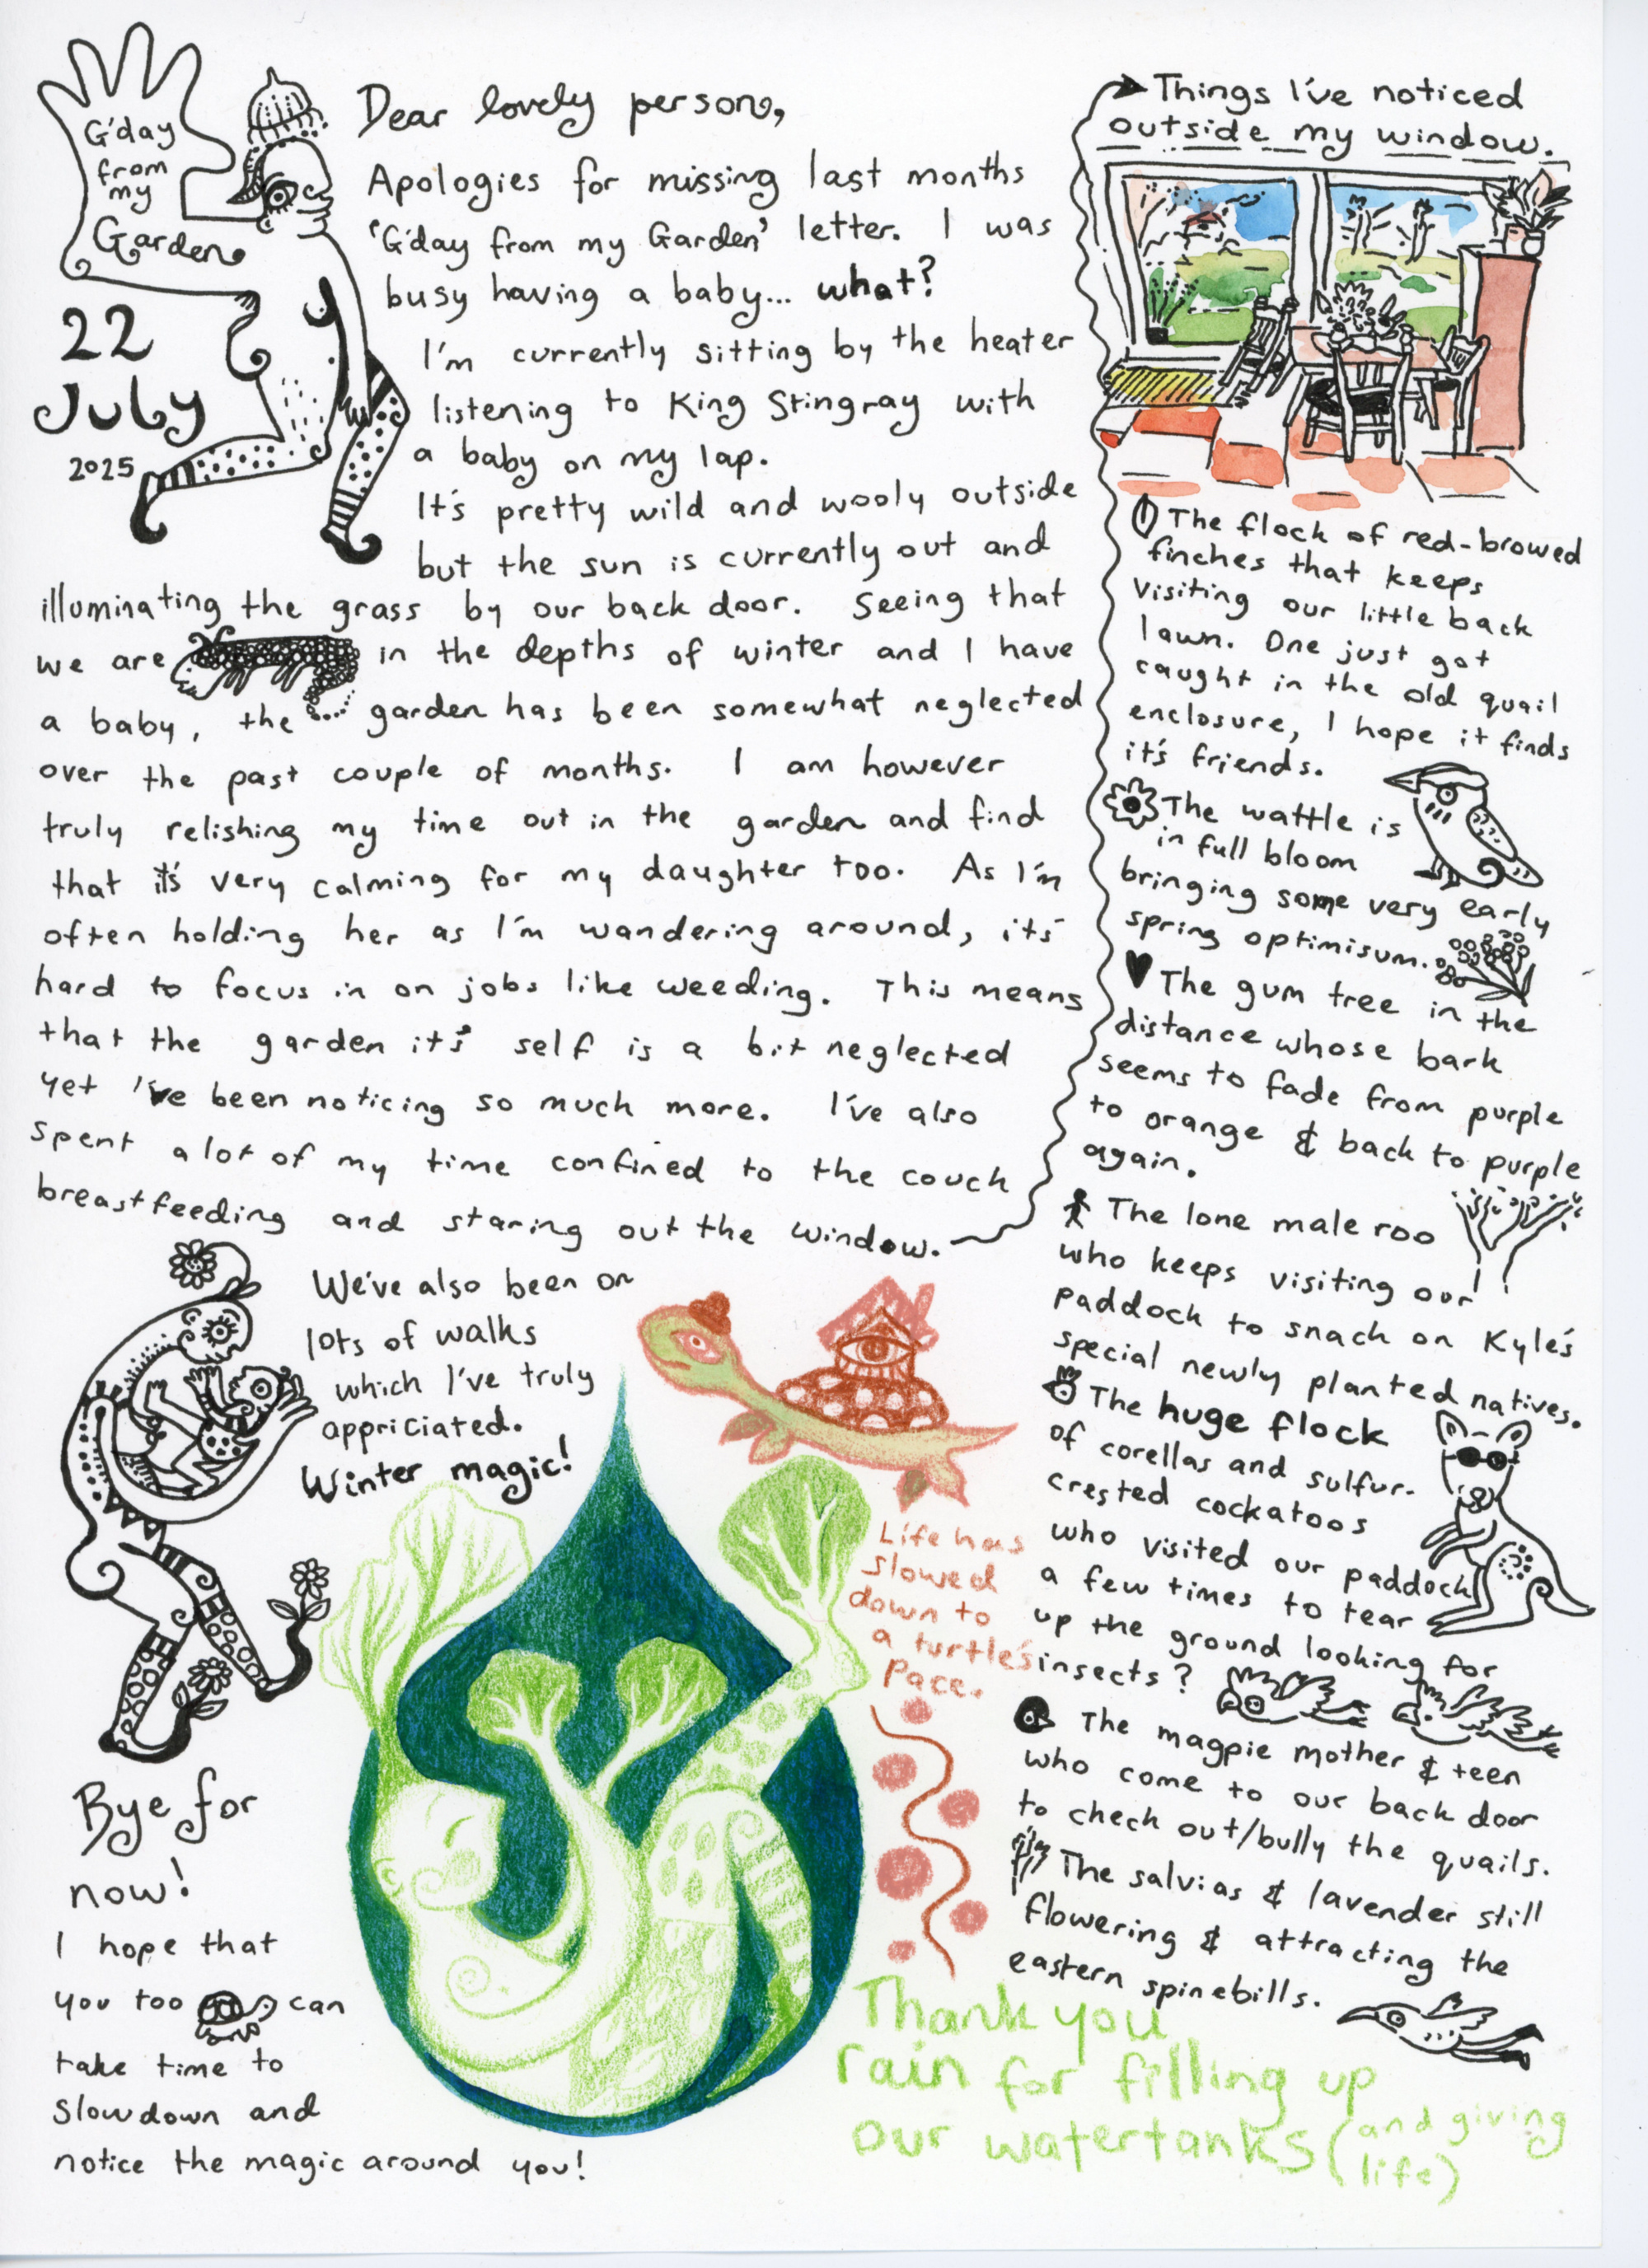 G'day
from
my
Garden
22
July
2025
Dear lovely person,
Apologies for missing last months
'G'day from my Garden' letter. I was
busy having a baby... what?
I'm currently sitting by the heater
listening to King Stingray with
a baby on my lap.
It's pretty wild and wooly outside
but the sun is currently out and
illuminating the grass by our back door. Seeing that
we are in the depths of winter and I have
a baby, the garden has been somewhat neglected
over the past couple of months. I am however
truly relishing my time out in the garden and find
that it's very calming for my daughter too. As I'm
often holding her as I'm wandering around, it's
hard to focus in on jobs like weeding. This means
that the garden it's self is a bit neglected
yet I've been noticing so much more. I've also
spent a lot of my time confined to the couch
breastfeeding and staring out the window.
Things I've noticed
outside my window.
The flock of red-browed
finches that keeps
visiting our little back
lawn. One just got
caught in the old quail
enclosure, I hope it finds
it's friends.
The wattle is
in full bloom
bringing some very early
spring optimisum.
The gum tree in the
distance whose bark
seems to fade from purple
to orange & back to purple
again.
The lone male roo
who keeps visiting our
paddock to snach on Kyle's
special newly planted natives.
The huge flock
of corellas and sulfur-
crested cockatoos
who visited our paddock
a few times to tear
up the ground looking for
insects?
The magpie mother & teen
who come to our back door
to check out/bully the quails.
The salvias & lavender still
flowering & attracting the
eastern spinebills.
We've also been on
lots of walks
which I've truly
appriciated.
Winter magic!
Life has
slowed
down to
a turtle's
pace.
Bye for
now!
I hope that
you too can
take time to
slowdown and
notice the magic around you!
Thank you
rain for filling up
our watertanks (and giving
life)